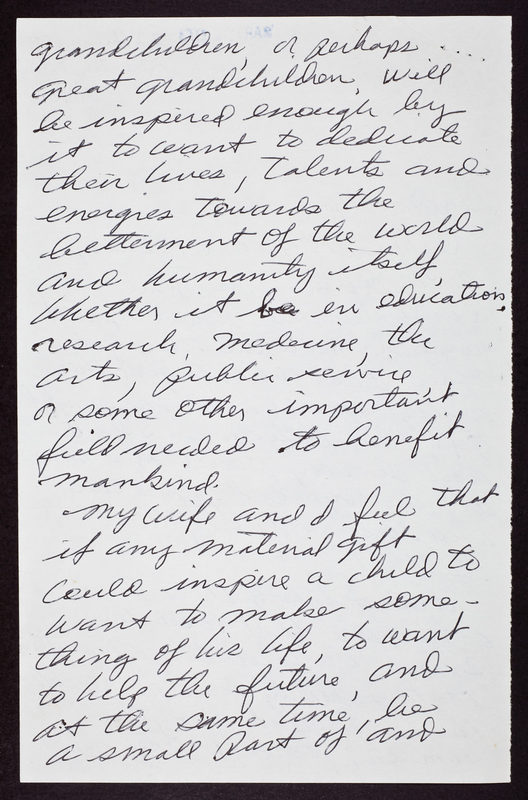 grandchildren, or perhaps ....
great grandchildren, will
be inspired enough by
it to want to dedicate
their lives, talents and
energies towards the
betterment of the world
and humanity itself,
whether it be in education,
research, medecine, the
arts, public service
or some other important
field needed to benefit
mankind.
My wife and I feel that
if any material gift
could inspire a child to
want to make some-
thing of his life, to want
to help the future, and
at the same time, be
a small part of, and